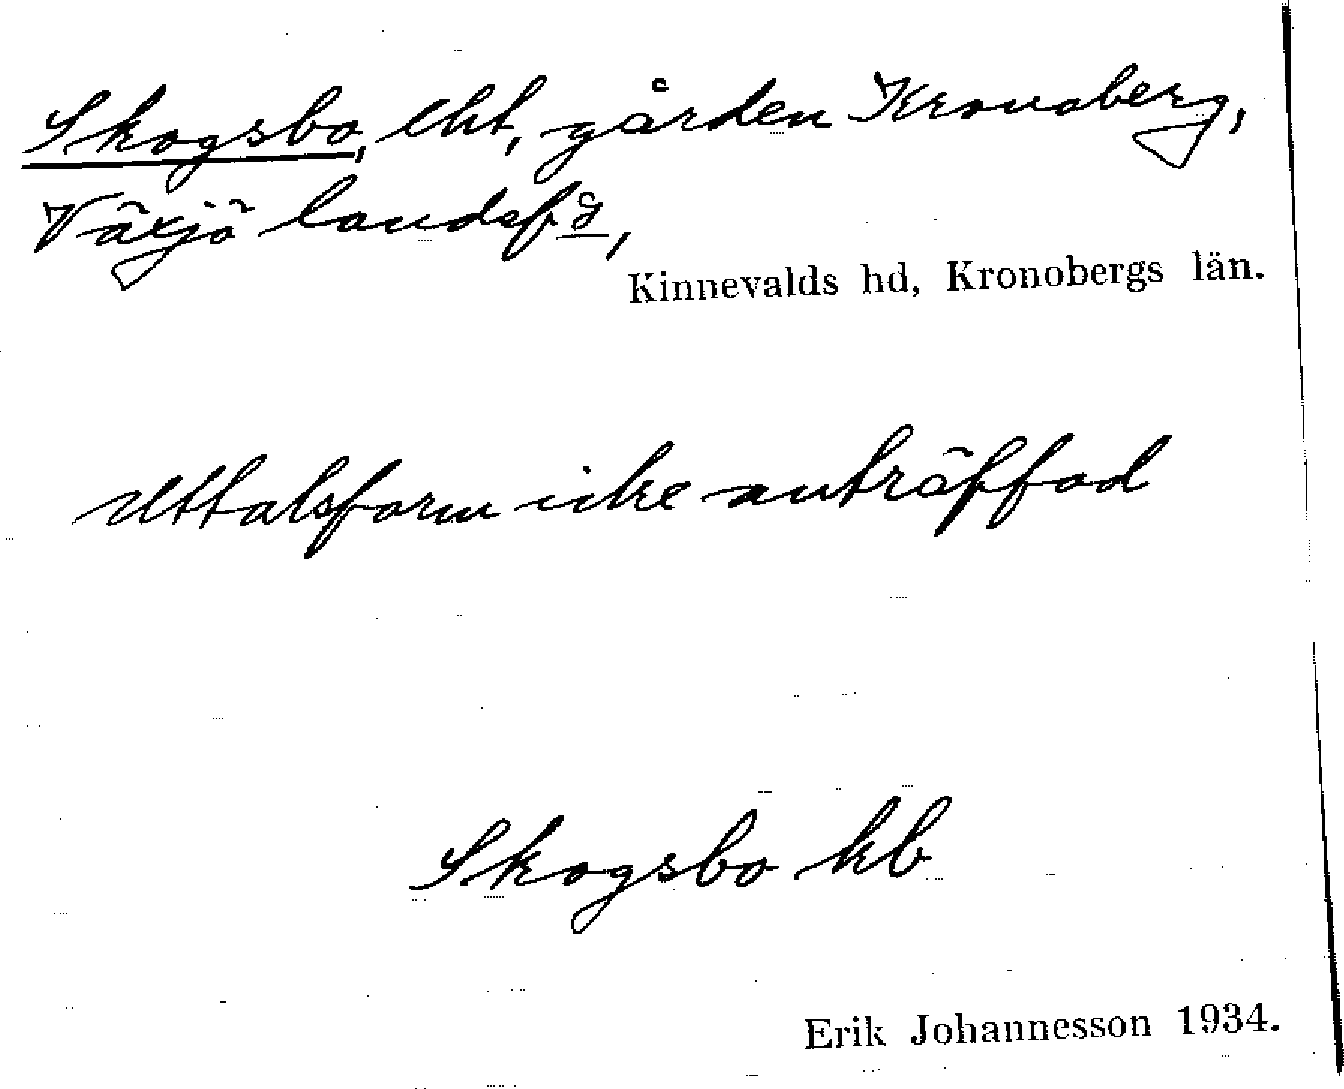 Skogsbo, lht, gården Kronoberg,
Växjö landsf͟d,
Kinnevalds hd, Kronobergs län.
Uttalsform icke anträffad
Skogsbo kb
Erik Johannesson 1934.